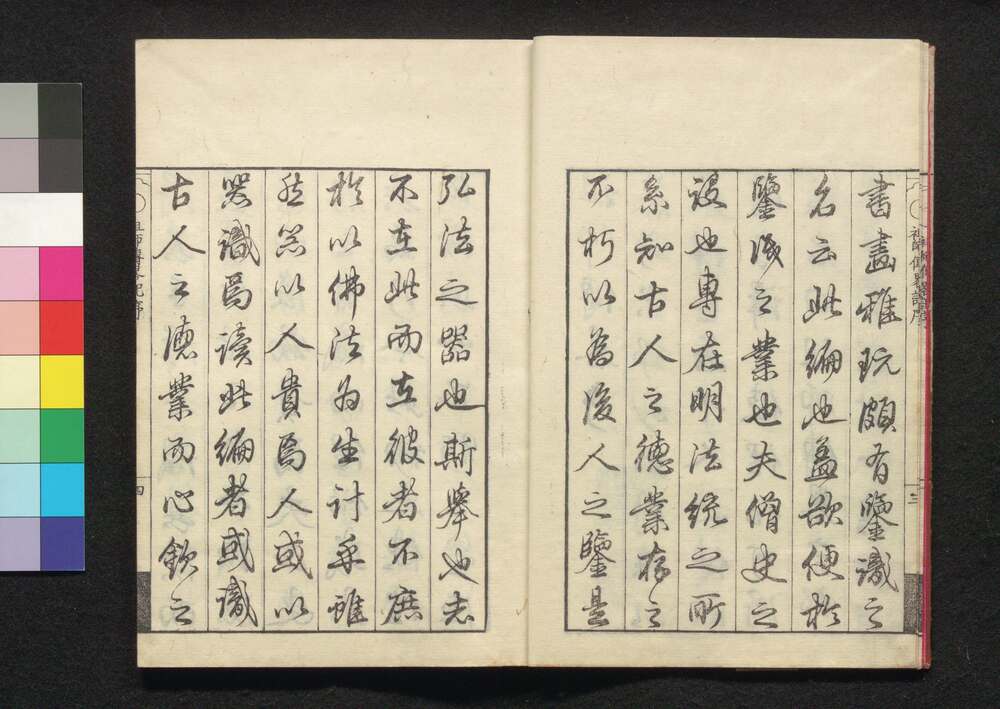 祖師傳畧記序
三
書畫雅玩頗有鑒識之
名云此編也蓋欲便於
鑒之業也夫僧史之
設也專在明法統之所
系知古人之德業存之
不朽以為後人之鑒是
弘法之器也斯舉也志
不在此而在彼者不庶
於以佛法為生計乎雖
然器以人貴焉人或以
器識焉讀此編者或識
古人之德業而心欽之
祖師傳畧記序
四